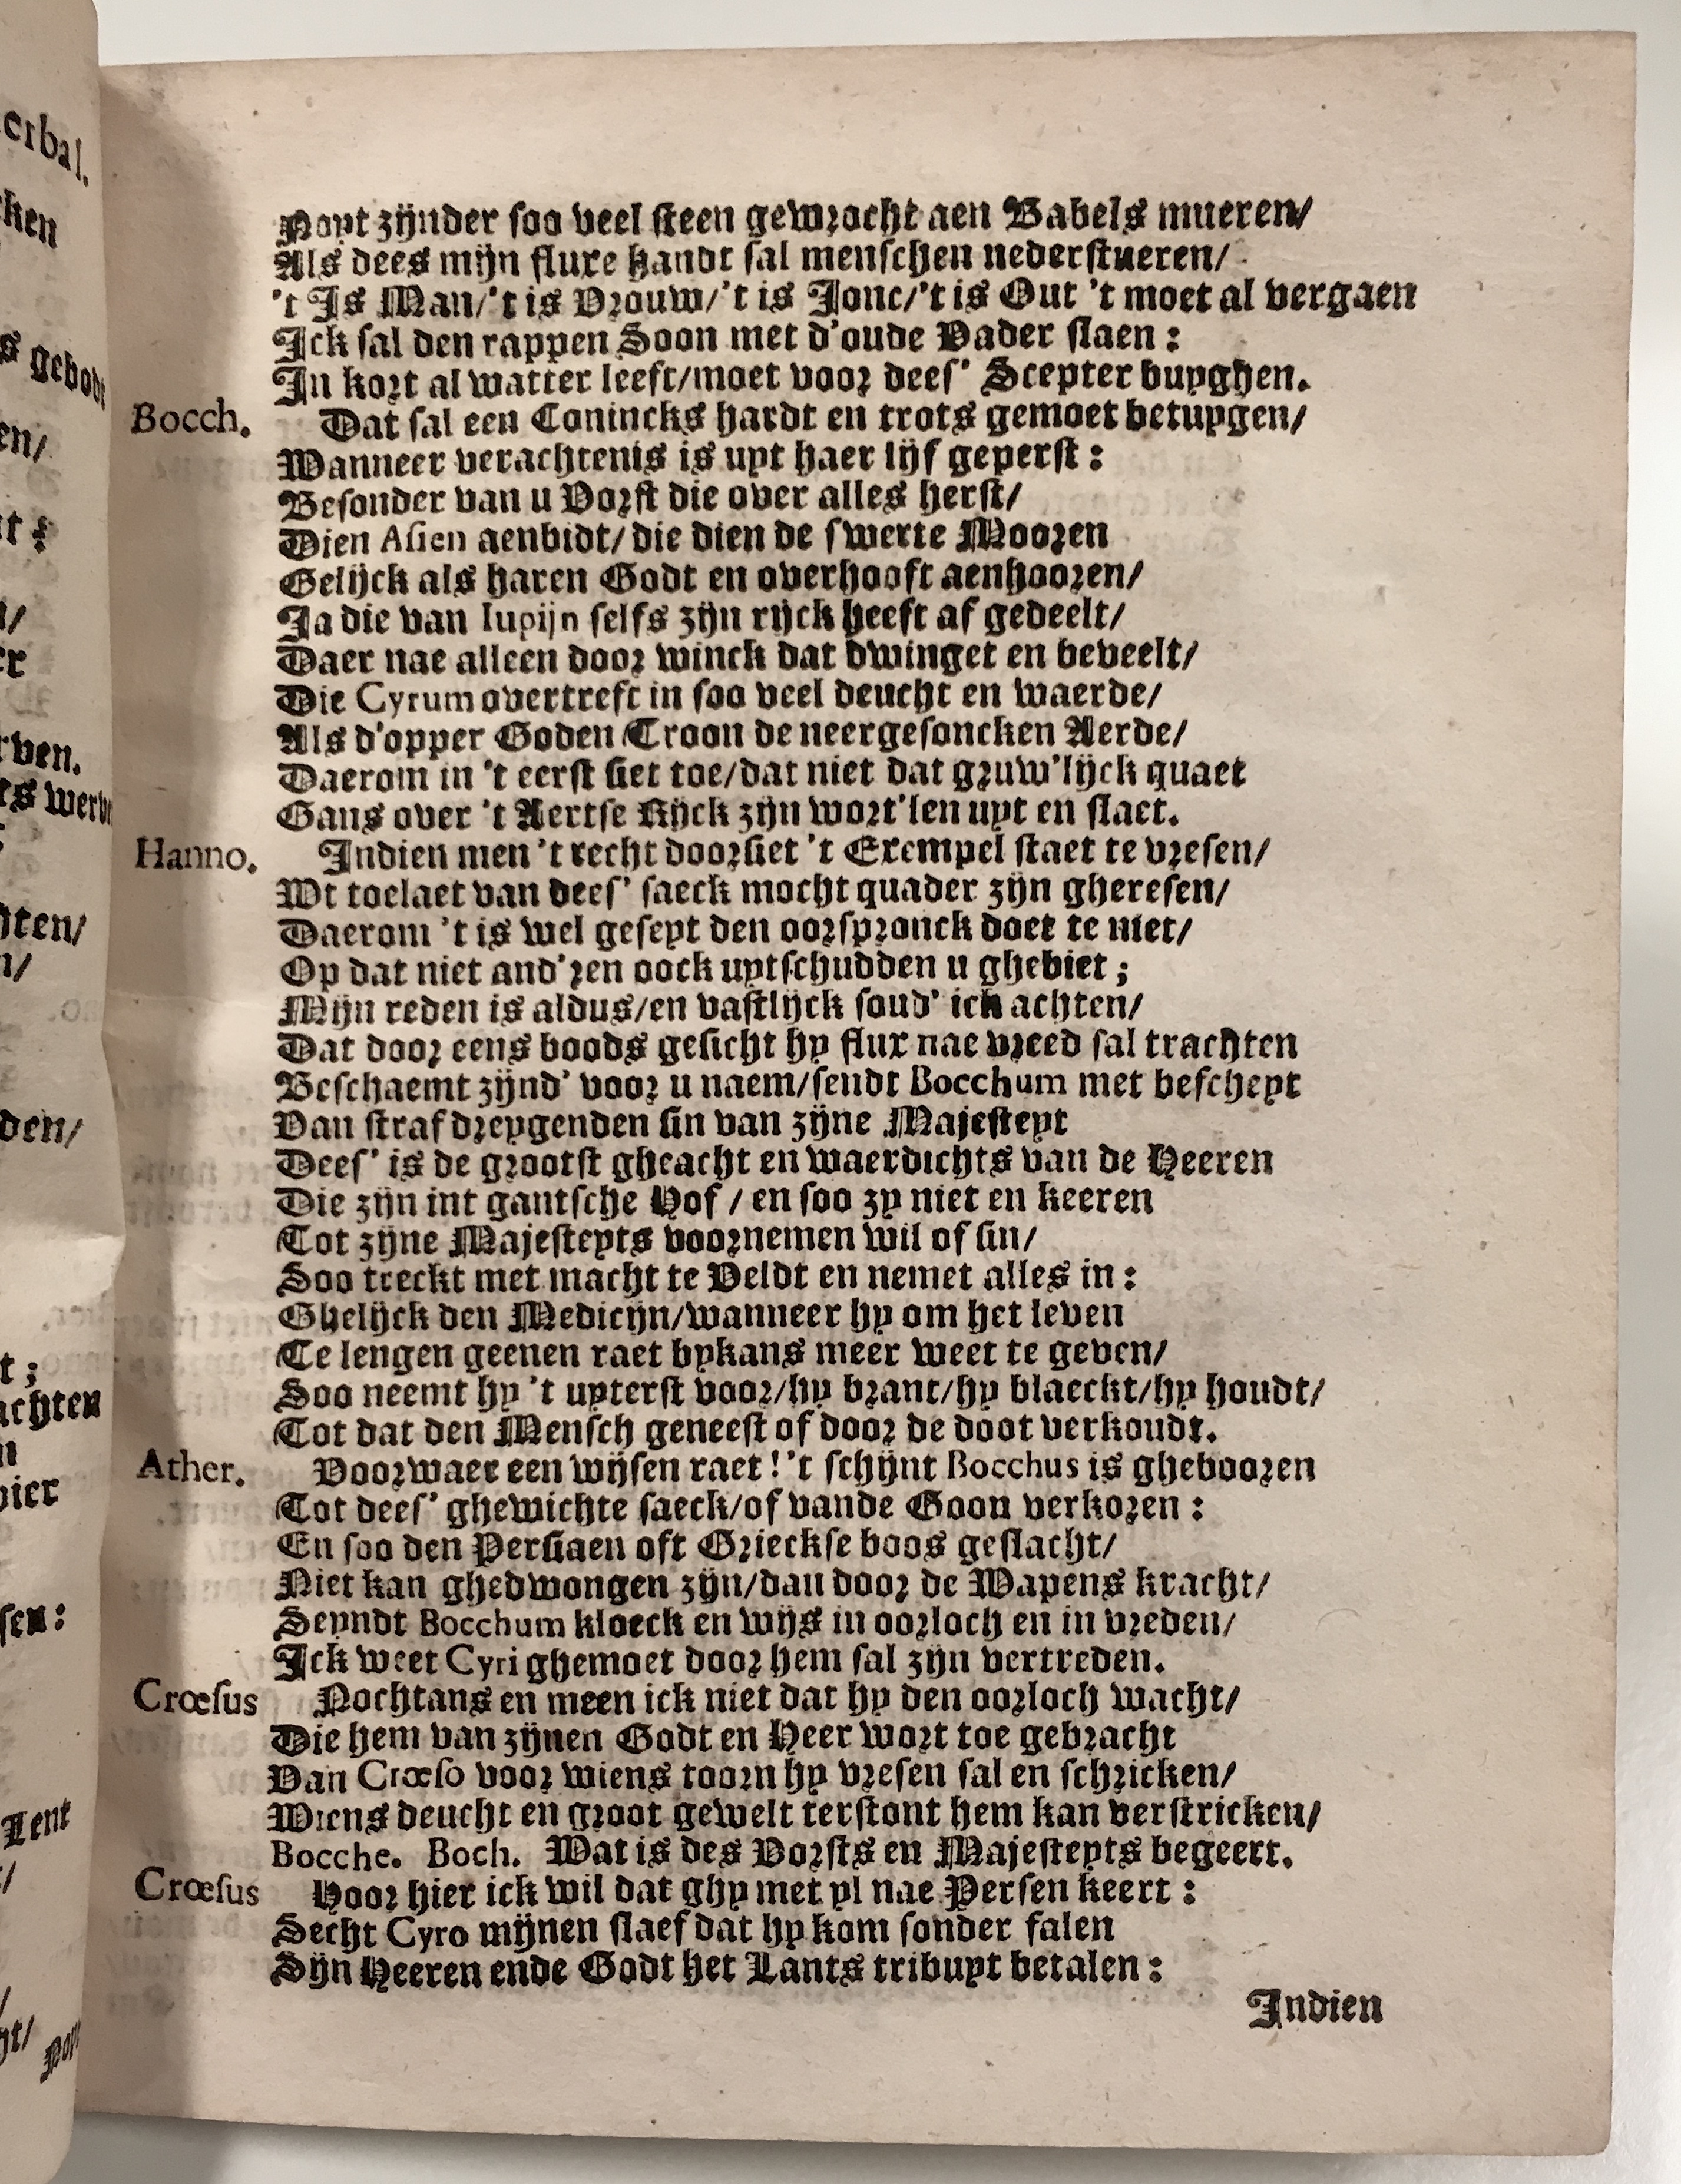 Noyt zijnder soo veel steen gewrocht aen Babels mueren/
Als dees mijn fluxe handt sal menschen nederstueren/
't Is Man/'t is Vrouw/'t is Jonc/'t is Out 't moet al vergaen
Ick sal den rappen Soon met d'oude Vader slaen:
In kort al watter leeft/moet voor dees' Scepter buyghen.
Bocch. Dat sal een Conincks hardt en trots gemoet betuygen/
Wanneer verachtenis is uyt haer lijf geperst:
Besonder van u Vorst die over alles herst/
Dien Asien aenbidt/die dien de swerte Mooren
Gelijck als haren Godt en overhooft aenhooren/
Ja die van Iupijn selfs zijn rijck heeft af gedeelt/
Daer nae alleen door winck dat dwinget en beveelt/
Die Cyrum overtreft in soo veel deucht en waerde/
Als d'opper Goden Troon de neergesoncken Aerde/
Daerom in 't eerst siet toe/dat niet dat gruw'lijck quaet
Gans over 't Aertse Rijck zijn wort'len uyt en slaet.
Hanno. Indien men 't recht doorsiet 't Exempel staet te vresen/
Wt toelaet van dees' saeck mocht quader zijn gheresen/
Daerom 't is wel geseyt den oorspronck doet te niet/
Op dat niet and'ren oock uytschudden u ghebiet;
Mijn reden is aldus/en vastlijck soud' ick achten/
Dat door eens boods gesicht hy flux nae vreed sal trachten
Beschaemt zijnd' voor u naem/sendt Bocchum met bescheyt
Van straf dreygenden sin van zijne Majesteyt
Dees' is de grootst gheacht en waerdichts van de Heeren
Die zijn int gantsche Hof / en soo zy niet en keeren
Tot zijne Majesteyts voornemen wil of sin/
Soo treckt met macht te Veldt en nemet alles in:
Ghelijck den Medicijn/wanneer hy om het leven
Te lengen geenen raet bykans meer weet te geven/
Soo neemt hy 't uyterst voor/hy brant/hy blaeckt/hy houdt/
Tot dat den Mensch geneest of door de doot verkoudt.
Ather. Voorwaer een wijsen raet!'t schijnt Bocchus is ghebooren
Tot dees' ghewichte saeck/of vande Goon verkoren:
En soo den Persiaen oft Grieckse boos geslacht/
Niet kan ghedwongen zijn/dan door de Wapens kracht/
Seyndt Bocchum kloeck en wijs in oorloch en in vreden/
Ick weet Cyri ghemoet door hem sal zijn vertreden.
Crœsus Nochtans en meen ick niet dat hy den oorloch wacht/
Die hem van zijnen Godt en Heer wort toe gebracht
Van Crœso voor wiens toorn hy vresen sal en schricken/
Wiens deucht en groot gewelt terstont hem kan verstricken/
Bocche. Boch. Wat is des Vorsts en Majesteyts begeert.
Crœsus Hoor hier ick wil dat ghy met yl nae Persen keert:
Secht Cyro mijnen slaef dat hy kom sonder falen
Sijn Heeren ende Godt het Lants tribuyt betalen:
Indien